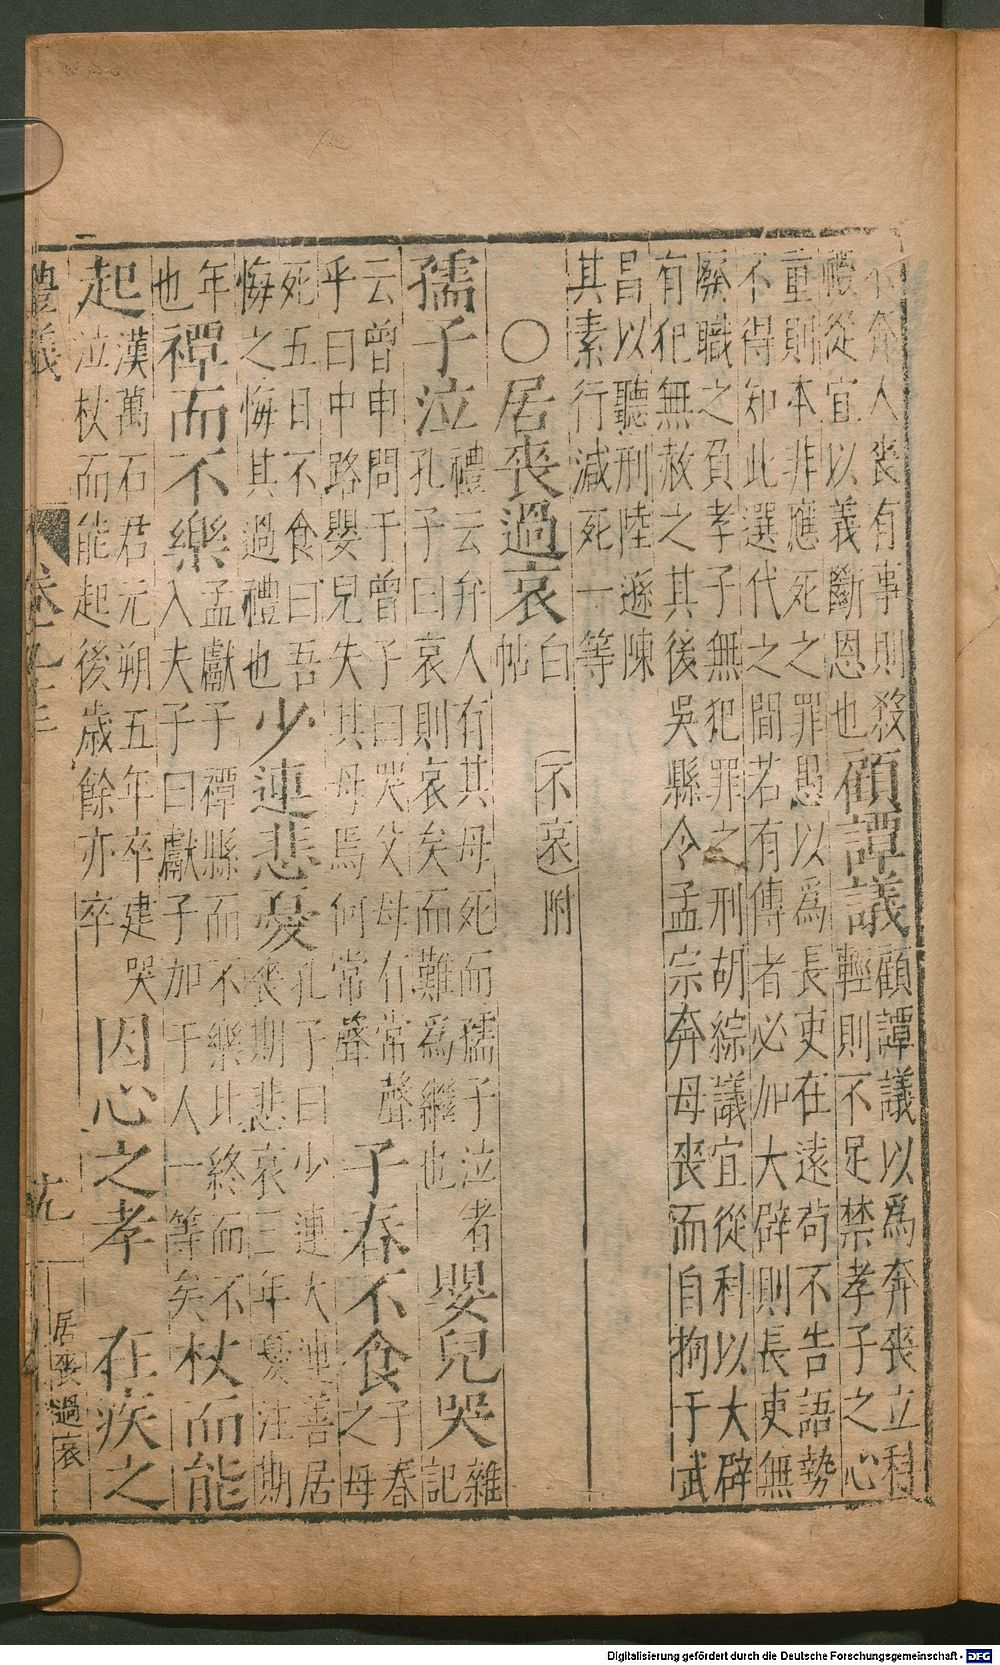 不奔人喪有事則殺
禮從宜以義斷恩也顧譚議顧譚議以爲奔喪立科
輕則不足禁孝子之心
重則本非應死之罪愚以爲長吏在遠苟不告語勢
不得知此選代之間若有傳者必加大辟則長吏無
廢職之負孝子無犯罪之刑胡綜議宜從利以大辟
有犯無赦之其後吳縣令孟宗奔母喪而自拘于武
昌以聽刑陸遜陳
其素行減死一等
○居喪過哀白帖(不哀)附
孺子泣禮云弁人有其母死而孺子泣者
孔子曰哀則哀矣而難爲繼也嬰兒哭雜
記
云曾申問于曾子曰哭父母有常聲
乎曰中路嬰兒失其母焉何常聲子春不食子春
之母
死五日不食曰吾
悔之悔其過禮也少連悲憂孔子曰少連大連善居
喪期悲哀三年憂注期
年禫而不樂孟獻子禫縣而不樂比終而不
也入夫子曰獻子加于人一等矣杖而能
起漢萬石君元朔五年卒建哭
泣杖而能起後歲餘亦卒因心之孝 在疚之
卷九十三
十九
居喪過哀
Digitalisierung gefördert durch die Deutsche Forschungsgemeinschaft - DFG